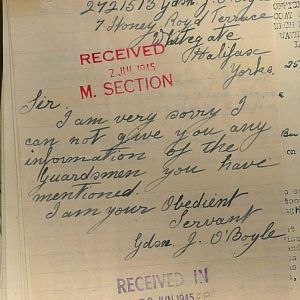 2721513 Gdsn. J. O'Boyle
7 Stoney Royd Terrace
Whitegate
Halifax
Yorks.
RECEIVED
2 JUL 1945
M. SECTION
Sir.
I am very sorry I
can not give you any
information of the
Guardsmen you have
mentioned.
I am your Obedient
Servant
Gdsn. J. O'Boyle.
RECEIVED IN
JUN 1945